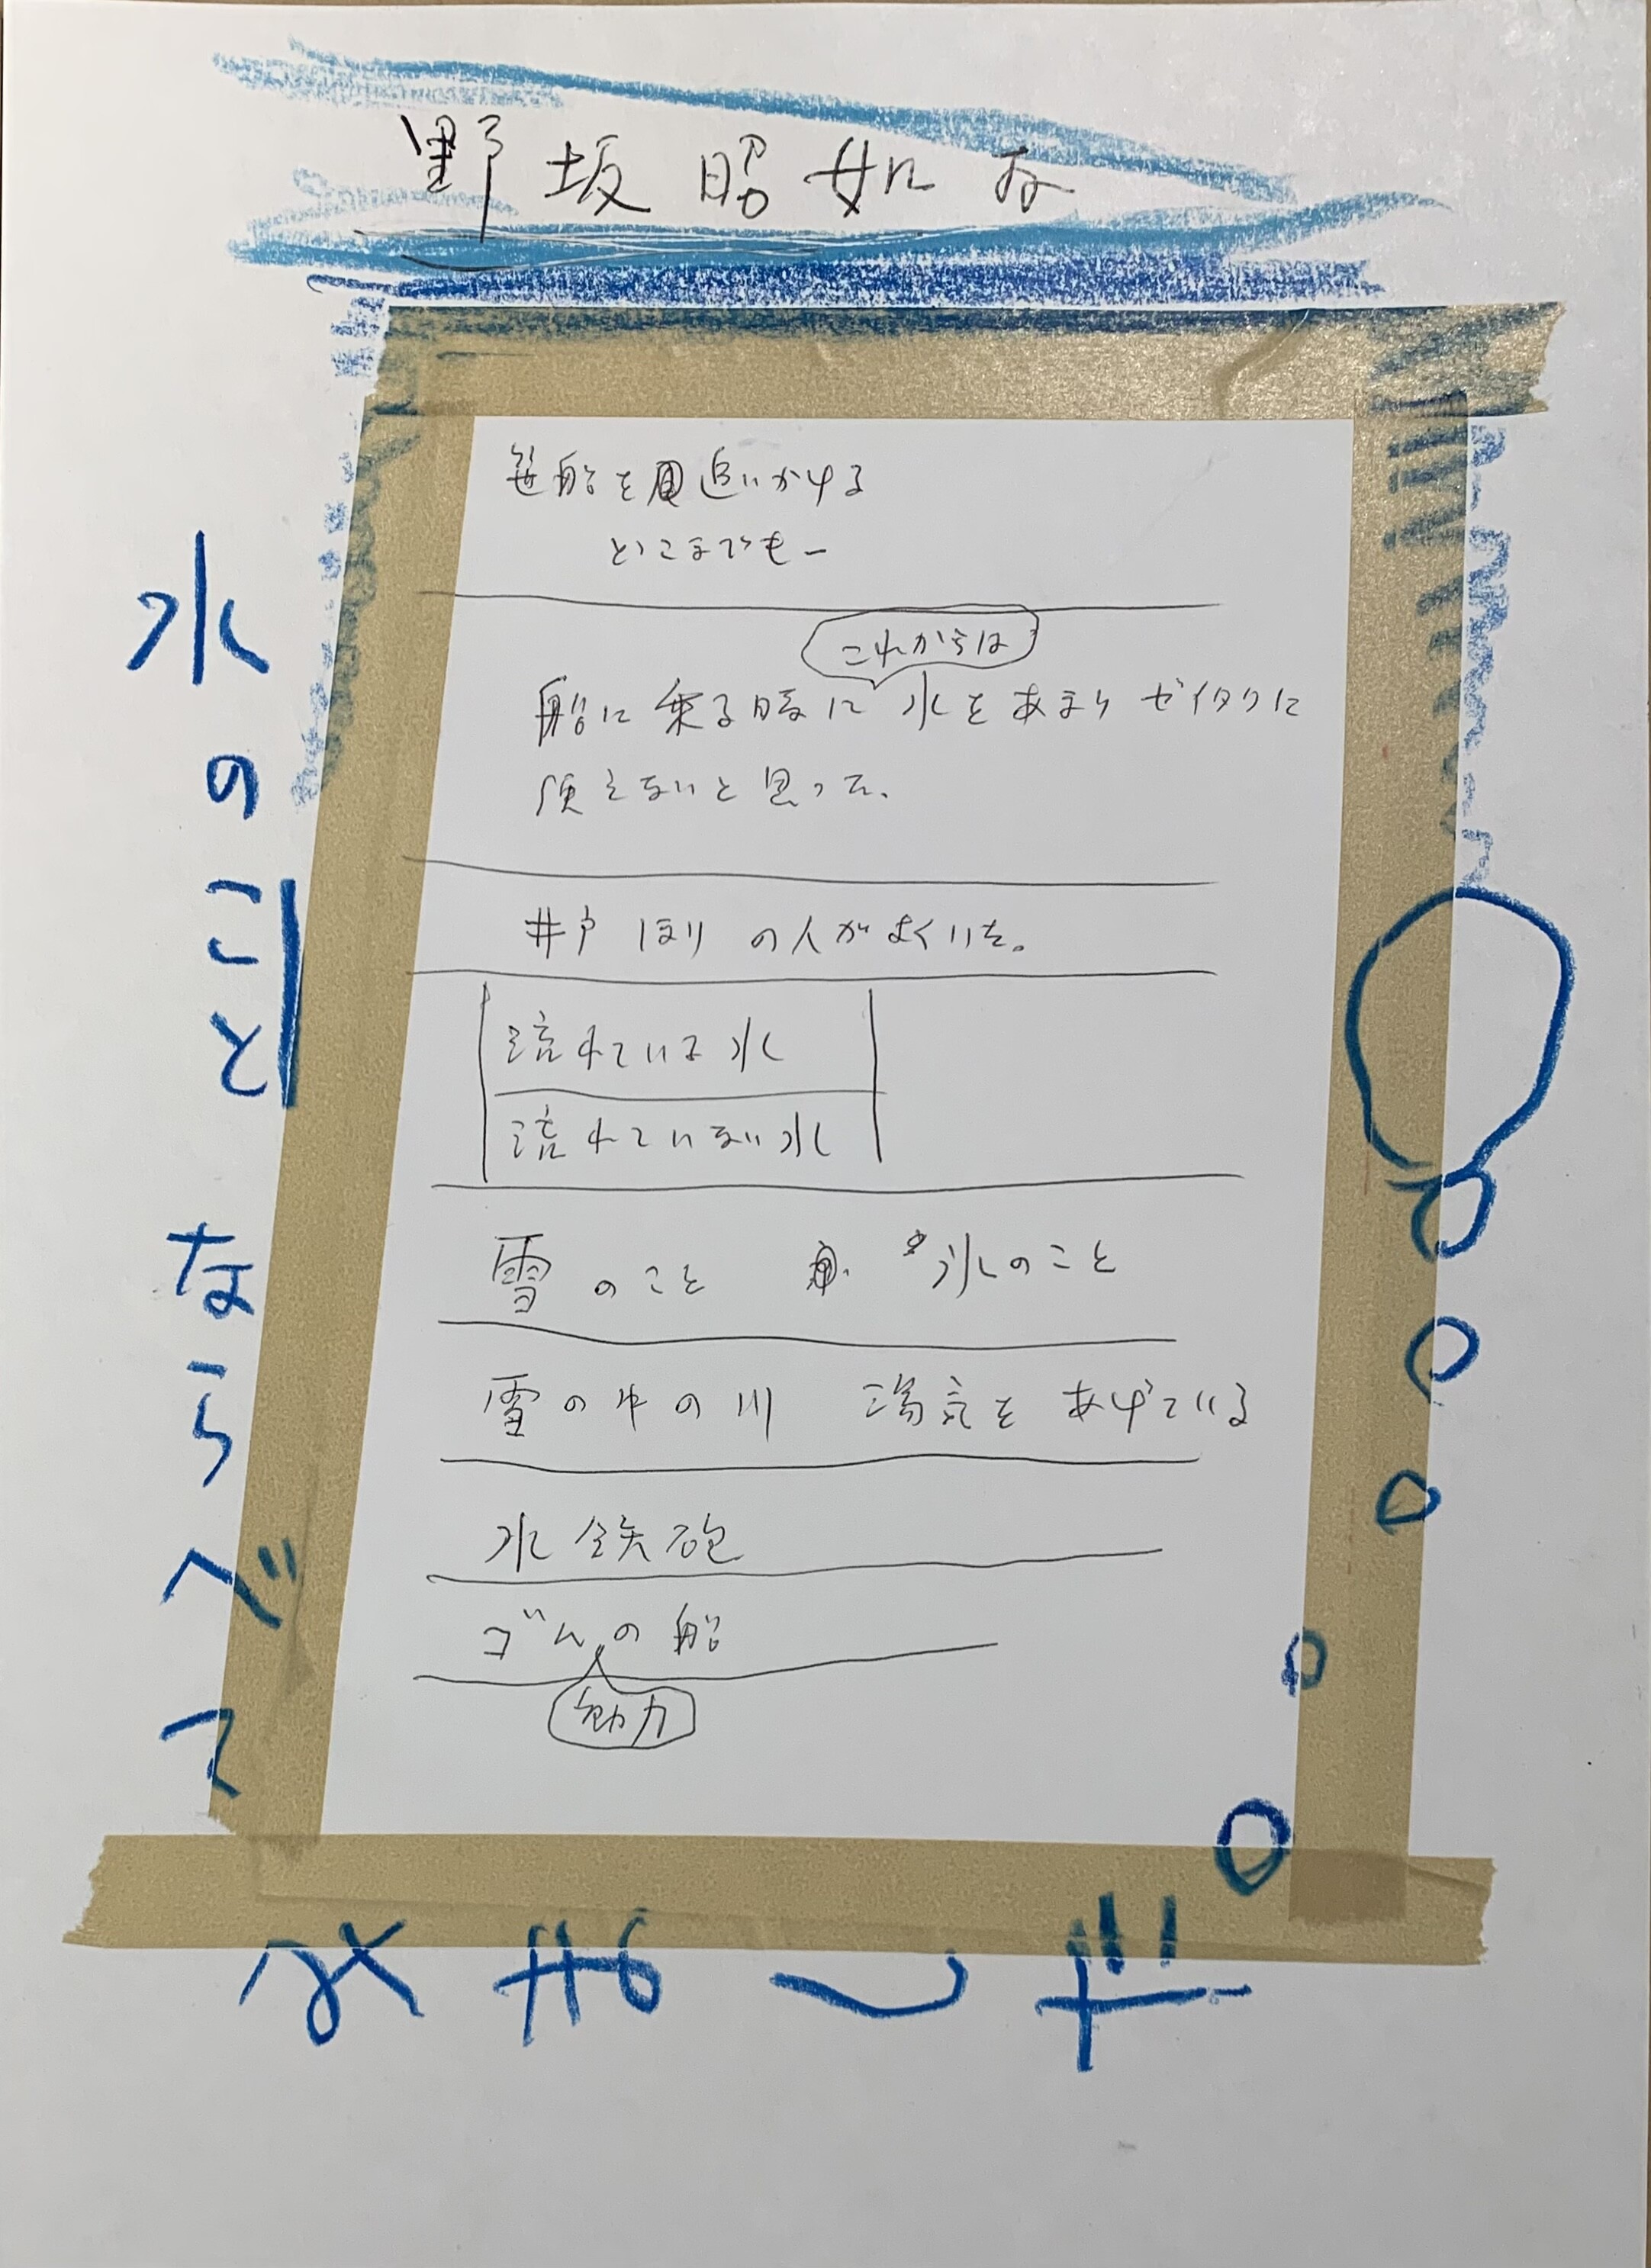 野坂昭如な
水のこと ならべて
笹船を追いかける
どこまでも−
これからは
船に乗る時に水をあまりゼイタクに
使えないと思った。
井戸ほりの人がよくいた。
流れている水
流れていない水
雪のこと 氷のこと
雪の中の川 湯気をあげている
水鉄砲
ゴムの船
動力